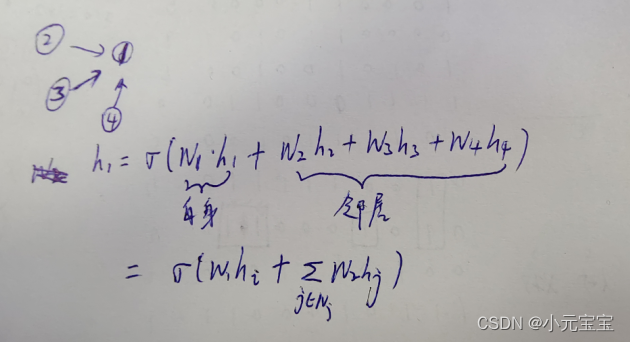 ② → ①
③
④
h₁ = σ(W₁·h₁ + W₂h₂ + W₃h₃ + W₄h₄)
自身 邻居
= σ(W₁hᵢ + Σ_{j∈Nⱼ} W₂hⱼ)
CSDN @小元宝宝